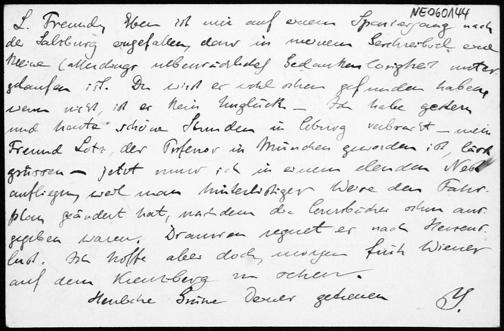 NE060144
L. Freund, Eben ist mir auf einem Spaziergang nach
der Salzburg eingefallen, dass in meinem eine
kleine (allerdings nebensächliche) Gedankenlosigkeit unter-
gelaufen ist. Du wirst er wohl schon gefunden haben,
wenn nicht, ist er kein Unglück – Ich habe gestern
und heute schöne Stunden in verbracht – mein
Freund Lotz, der Professor in München geworden ist, lässt
grüssen – jetzt muss ich in einem elenden Nest
aufliegen, weil man hinterlistiger Weise den Fahr-
plan geändert hat, nachdem die schon aus-
gegeben waren. Draussen regnet er nach Herzens-
lust. Ich hoffe aber doch, morgen früh Wiener
auf dem Kreuzberg zu sehen.
Herzliche Grüsse Deines getreuen